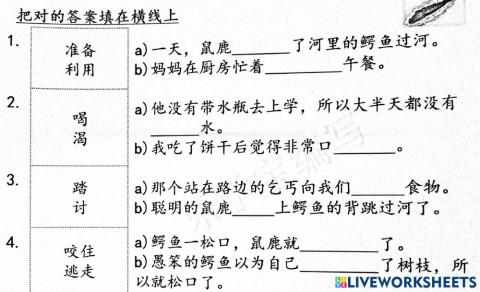 把对的答案填在横线上
1. 准备 利用
a) 一天，鼠鹿_______了河里的鳄鱼过河。
b) 妈妈在厨房忙着_________午餐。
2. 喝 渴
a) 他没有带水瓶去上学，所以大半天都没有
______水。
b) 我吃了饼干后觉得非常口_______。
3. 踏 讨
a) 那个站在路边的乞丐向我们______食物。
b) 聪明的鼠鹿_____上鳄鱼的背跳过河了。
4. 咬住 逃走
a) 鳄鱼一松口，鼠鹿就_________了。
b) 愚笨的鳄鱼以为自己_________了树枝，所
以就松口了。
LIVEWORKSHEETS